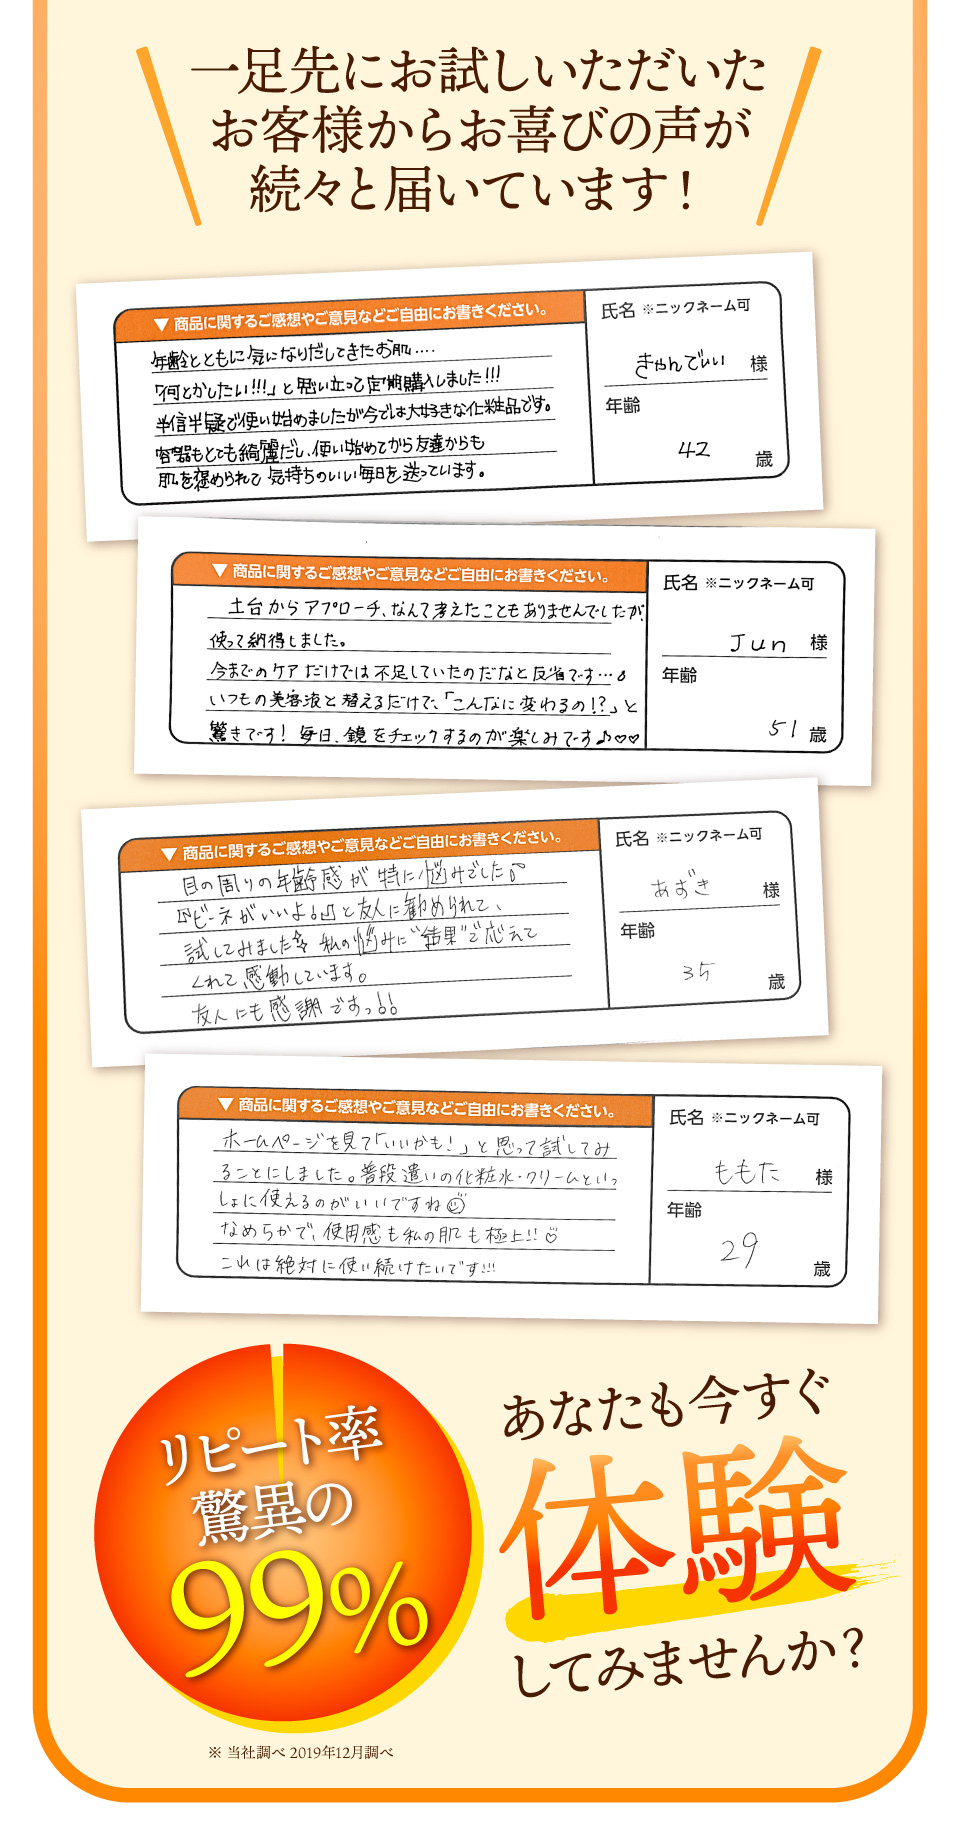 一足先にお試しいただいた
お客様からお喜びの声が
続々と届いています！
▼ 商品に関するご感想やご意見などご自由にお書きください。
氏名 ※ニックネーム可
年齢とともに気になりだしてきたお肌‥‥
「何とかしたい!!!」と思い立って定期購入しました!!!
半信半疑で使い始めましたが今では大好きな化粧品です。
容器もとても綺麗だし、使い始めてから友達からも
肌を褒められて気持ちのいい毎日を送っています。
きゃんでぃい 様
年齢
42 歳
▼ 商品に関するご感想やご意見などご自由にお書きください。
氏名 ※ニックネーム可
土台からアプローチ、なんて考えたこともありませんでしたが、
使って納得しました。
今までのケアだけでは不足していたのだなと反省です…。
いつもの美容液と替えるだけで、「こんなに変わるの!?」と
驚きです! 毎日、鏡をチェックするのが楽しみです♪♡♡
Jun 様
年齢
51 歳
▼ 商品に関するご感想やご意見などご自由にお書きください。
氏名 ※ニックネーム可
目の周りの年齢感が特に悩みでした♪
『ビーネがいいよ。』と友人に勧められて、
試してみました☆ 私の悩みに"結果"で応えて
くれて感動しています。
友人にも感謝ですっ!!
あずき 様
年齢
35 歳
▼ 商品に関するご感想やご意見などご自由にお書きください。
氏名 ※ニックネーム可
ホームページを見て「いいかも!」と思って試してみ
ることにしました。普段遣いの化粧水・クリームといっ
しょに使えるのがいいですね☺
なめらかで、使用感も私の肌も極上!!♡
これは絶対に使い続けたいです!!!
ももた 様
年齢
29 歳
リピート率
驚異の
99%
※ 当社調べ 2019年12月調べ
あなたも今すぐ
体験
してみませんか？